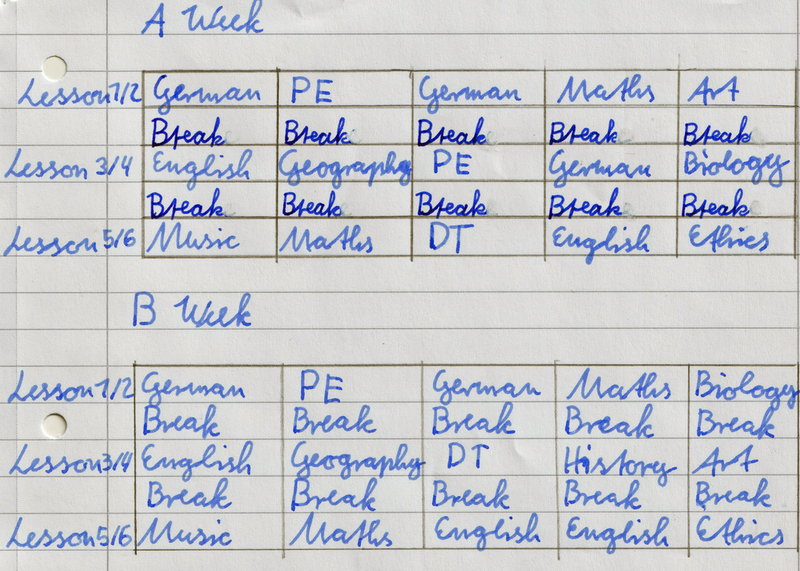 A Week
Lesson 1/2 German PE German Maths Art
Break Break Break Break Break
Lesson 3/4 English Geography PE German Biology
Break Break Break Break Break
Lesson 5/6 Music Maths DT English Ethics
B Week
Lesson 1/2 German PE German Maths Biology
Break Break Break Break Break
Lesson 3/4 English Geography DT History Art
Break Break Break Break Break
Lesson 5/6 Music Maths English English Ethics